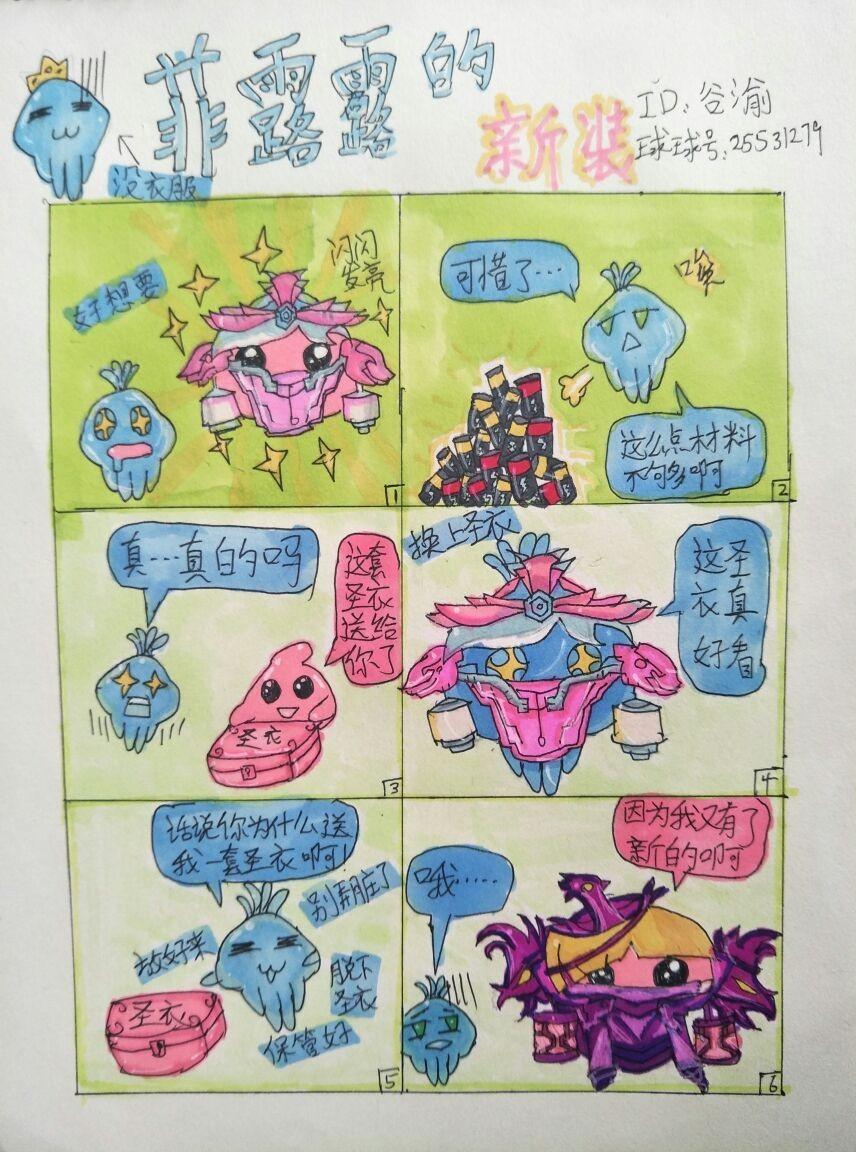 菲露露的
新装
ID：谷渝
球球号：25531279
没衣服
好想要
闪闪
发亮
1
可惜了…
唉
这么点材料
不够多啊
2
真…真的吗
这套
圣衣
送给
你了
圣衣
3
换上圣衣
这圣
衣真
好看
4
话说你为什么送
我一套圣衣啊！
别弄脏了
放好来
脱下
圣衣
保管好
圣衣
5
因为我又有了
新的叩阿
哦……
6